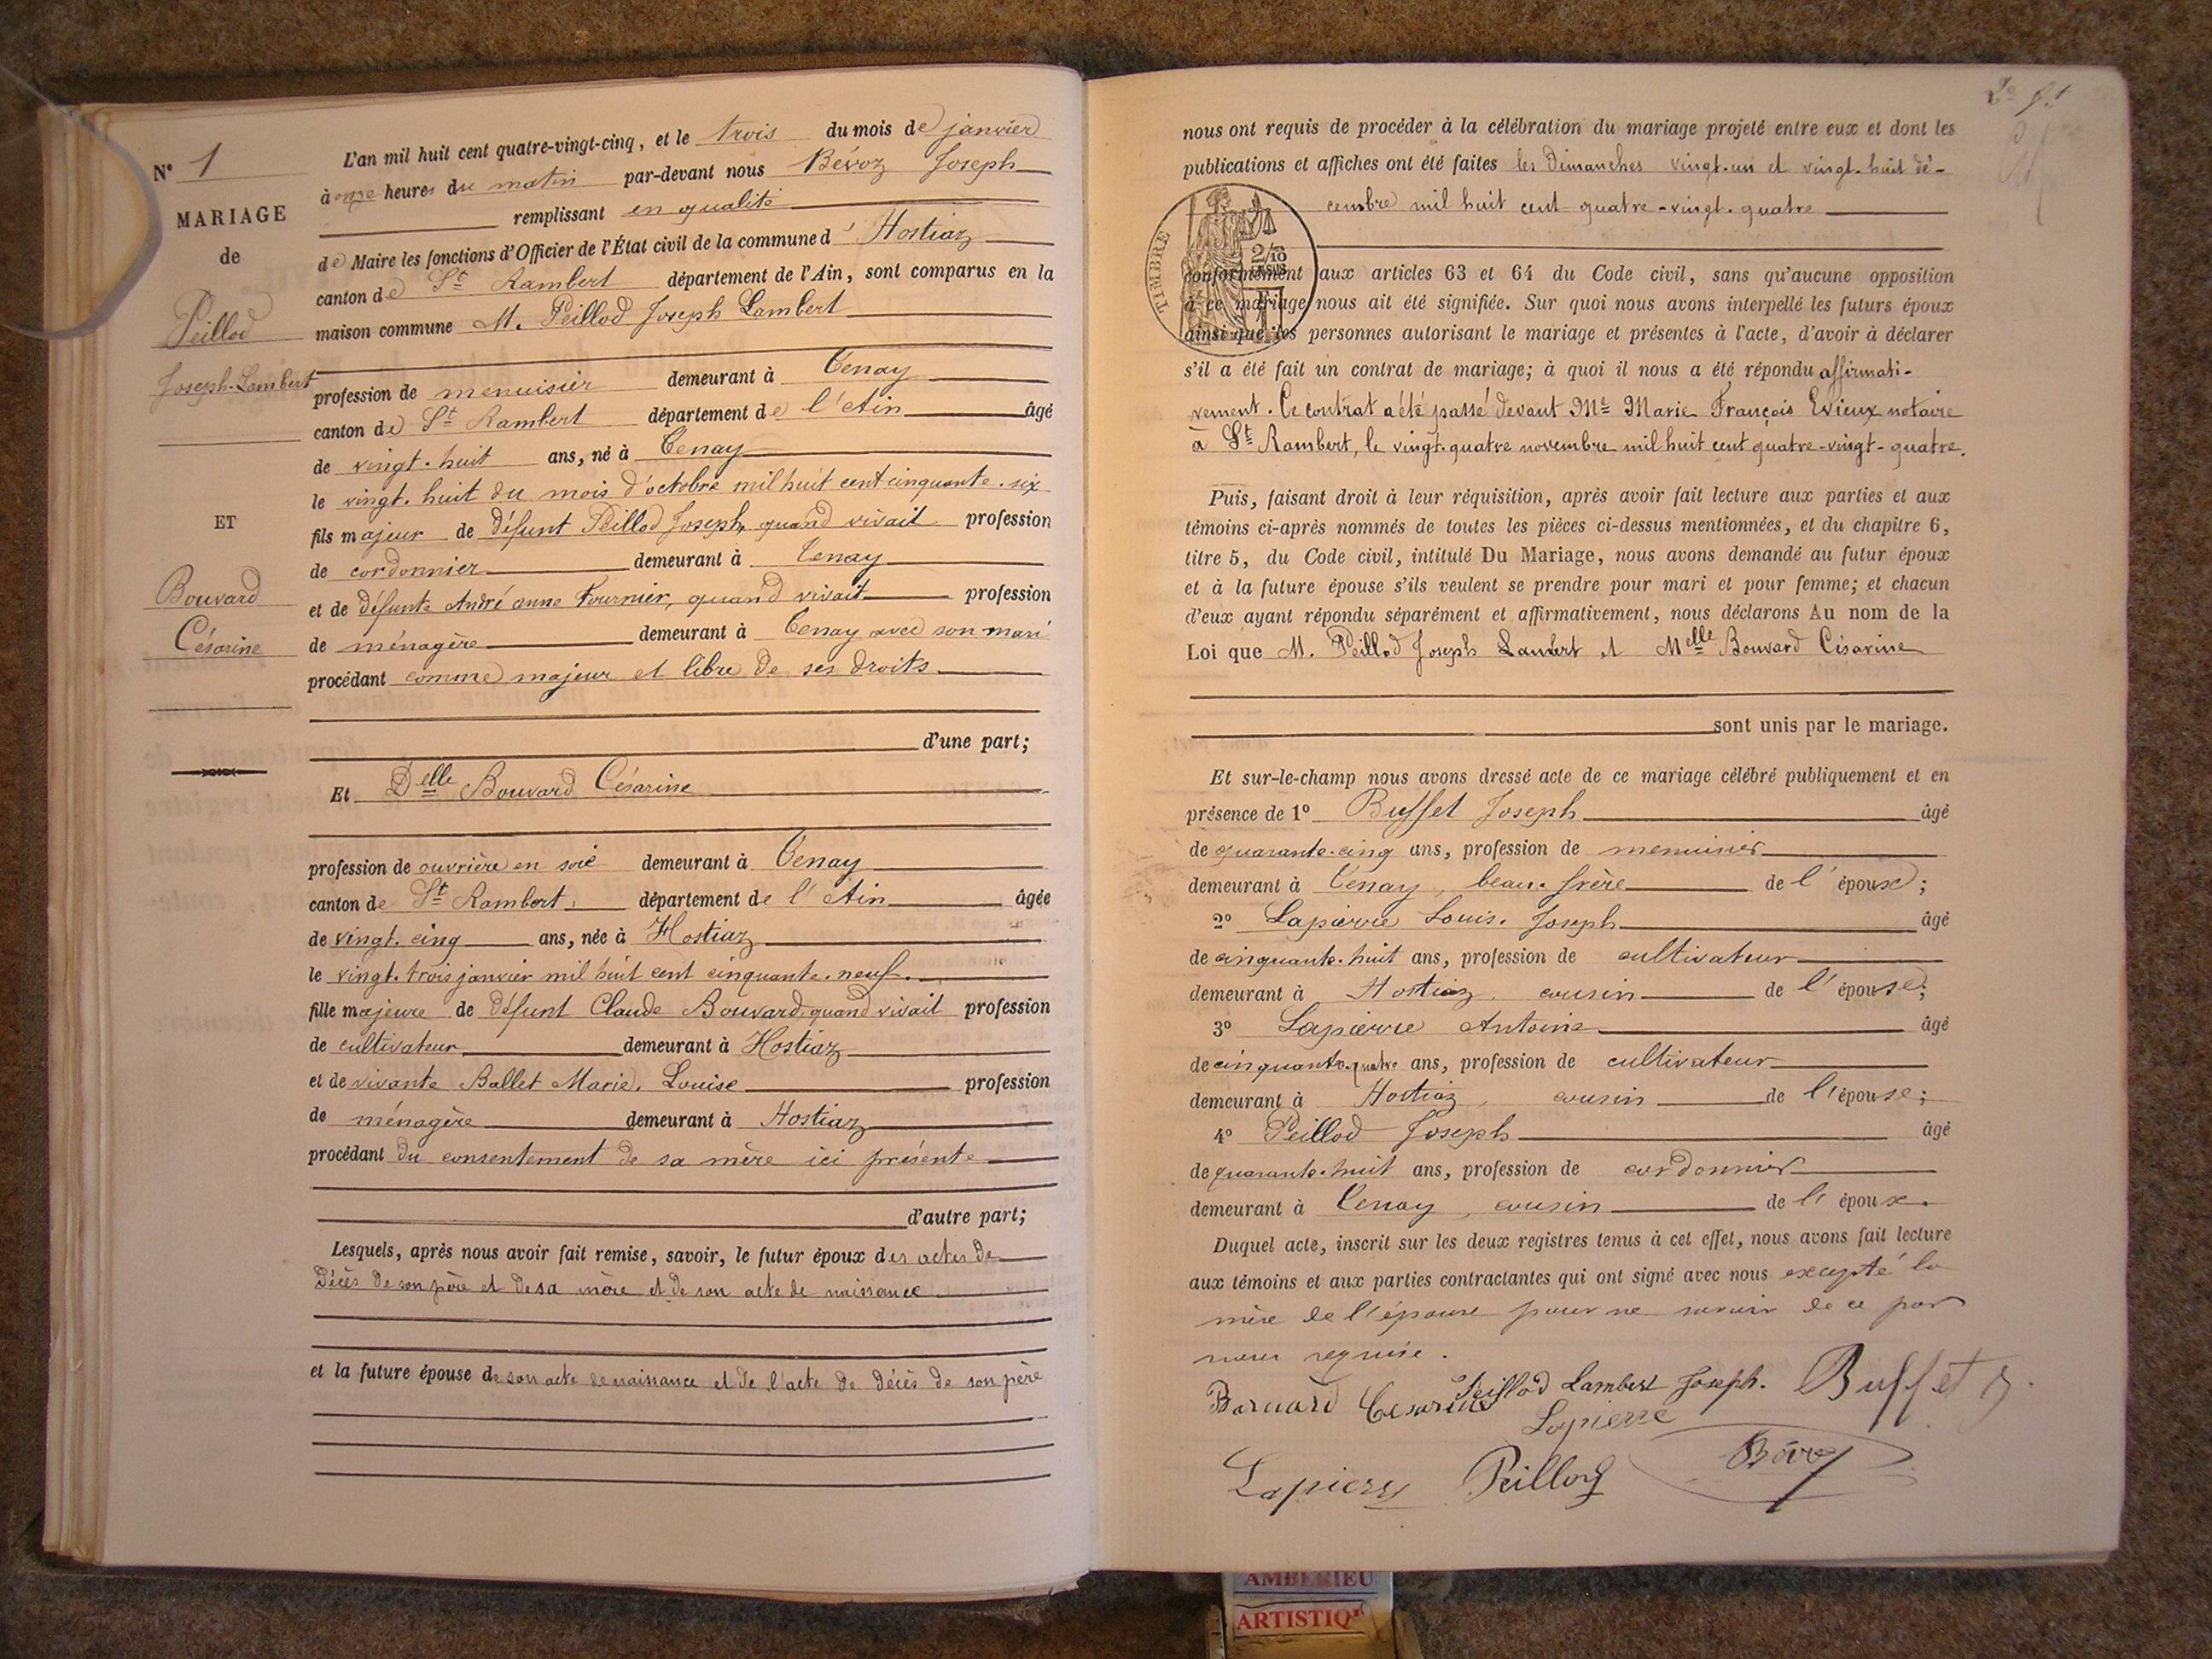 N° 1
MARIAGE
de
Peillod
Joseph-Lambert
ET
Bouvard
Césarine
L'an mil huit cent quatre-vingt-cinq, et le trois du mois de janvier
à onze heures du matin par-devant nous Bévoz Joseph
remplissant en qualité
de Maire les fonctions d'Officier de l'État civil de la commune d'Hostiaz
canton de St Rambert département de l'Ain, sont comparus en la
maison commune M. Peillod Joseph Lambert
profession de menuisier demeurant à Tenay
canton de St Rambert département de l'Ain âgé
de vingt-huit ans, né à Tenay
le vingt-huit du mois d'octobre mil huit cent cinquante-six
fils majeur de défunt Peillod Joseph, quand vivait profession
de cordonnier demeurant à Tenay
et de défunte André anne Fournier, quand vivait profession
de ménagère demeurant à Tenay avec son mari
procédant comme majeur et libre de ses droits
d'une part;
Et Delle Bouvard Césarine
profession de ouvrière en soie demeurant à Tenay
canton de St Rambert département de l'Ain âgée
de vingt-cinq ans, née à Hostiaz
le vingt-trois janvier mil huit cent cinquante-neuf.
fille majeure de défunt Claude Bouvard, quand vivait profession
de cultivateur demeurant à Hostiaz
et de vivante Ballet Marie-Louise profession
de ménagère demeurant à Hostiaz
procédant du consentement de sa mère ici présente
d'autre part;
Lesquels, après nous avoir fait remise, savoir, le futur époux des actes de
décès de son père et de sa mère et de son acte de naissance
et la future épouse de son acte de naissance et de l'acte de décès de son père
nous ont requis de procéder à la célébration du mariage projeté entre eux et dont les
publications et affiches ont été faites les Dimanches vingt-un et vingt-huit dé-
cembre mil huit cent quatre-vingt-quatre
TIMBRE
2/10
conformément aux articles 63 et 64 du Code civil, sans qu'aucune opposition
à ce mariage nous ait été signifiée. Sur quoi nous avons interpellé les futurs époux
ainsi que les personnes autorisant le mariage et présentes à l'acte, d'avoir à déclarer
s'il a été fait un contrat de mariage; à quoi il nous a été répondu affirmati-
vement. Ce contrat a été passé devant Me Marie François Evieux notaire
à St Rambert, le vingt-quatre novembre mil huit cent quatre-vingt-quatre.
Puis, faisant droit à leur réquisition, après avoir fait lecture aux parties et aux
témoins ci-après nommés de toutes les pièces ci-dessus mentionnées, et du chapitre 6,
titre 5, du Code civil, intitulé Du Mariage, nous avons demandé au futur époux
et à la future épouse s'ils veulent se prendre pour mari et pour femme; et chacun
d'eux ayant répondu séparément et affirmativement, nous déclarons Au nom de la
Loi que M. Peillod Joseph Lambert et Melle Bouvard Césarine
sont unis par le mariage.
Et sur-le-champ nous avons dressé acte de ce mariage célébré publiquement et en
présence de 1° Buffet Joseph âgé
de quarante-cinq ans, profession de menuisier
demeurant à Tenay, beau-frère de l'époux;
2° Lapierre Louis-Joseph âgé
de cinquante-huit ans, profession de cultivateur
demeurant à Hostiaz, cousin de l'épouse;
3° Lapierre Antoine âgé
de cinquante-quatre ans, profession de cultivateur
demeurant à Hostiaz, cousin de l'épouse;
4° Peillod Joseph âgé
de quarante-huit ans, profession de cordonnier
demeurant à Tenay, cousin de l'époux.
Duquel acte, inscrit sur les deux registres tenus à cet effet, nous avons fait lecture
aux témoins et aux parties contractantes qui ont signé avec nous excepté la
mère de l'épouse pour ne savoir de ce par
nous requise.
Bouvard Cesarine Peillod Lambert Joseph. Buffet J.
Lapierre
Lapierre Peillod Bévoz
AMBERIEU
ARTISTIQ